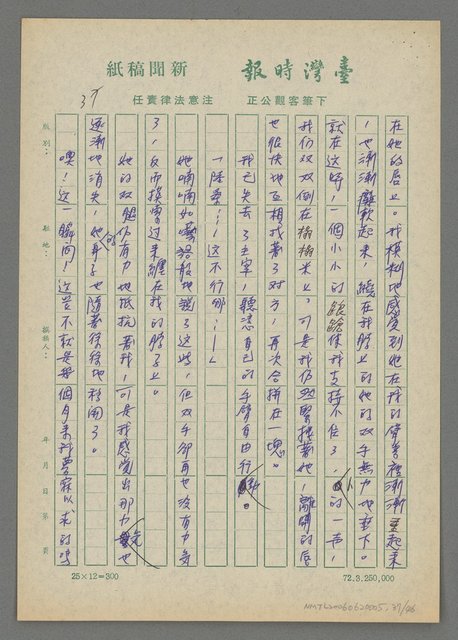 臺灣時報 新聞稿紙
下筆客觀公正 注意法律責任
37
在她的唇上。我模糊地感覺到她在我的臂裡漸漸
,也漸漸癱軟起來,繞在我脖上的她的雙手無力地垂下。
就在這時,一個小小的踉蹌使我支持不住了,的一聲,
我們双双倒在榻榻米上,可是我仍緊摟著她,離開的唇
也很快地互相找著了對方,再次合拼在一塊。
我已失去了主宰,聽憑自己的手臂自由行動。
「陸葉……這不行哪……」
她喃喃如囈語般地說了這些,但双手卻再也没有力氣
了,反而摸索過來纏在我的脖子上。
她的双腿仍有力地抵抗著我,可是我感覺出那力氣也
逐漸地消失,她的身子也隨著徐徐地移開了。
噢!這一瞬間!這豈不就是每個月來我夢寐以求的嗎
版別:
駐地:
撰稿人:
年 月 日 第 頁
25×12=300
72.3.250,000
NMTL20060620005, 37/06